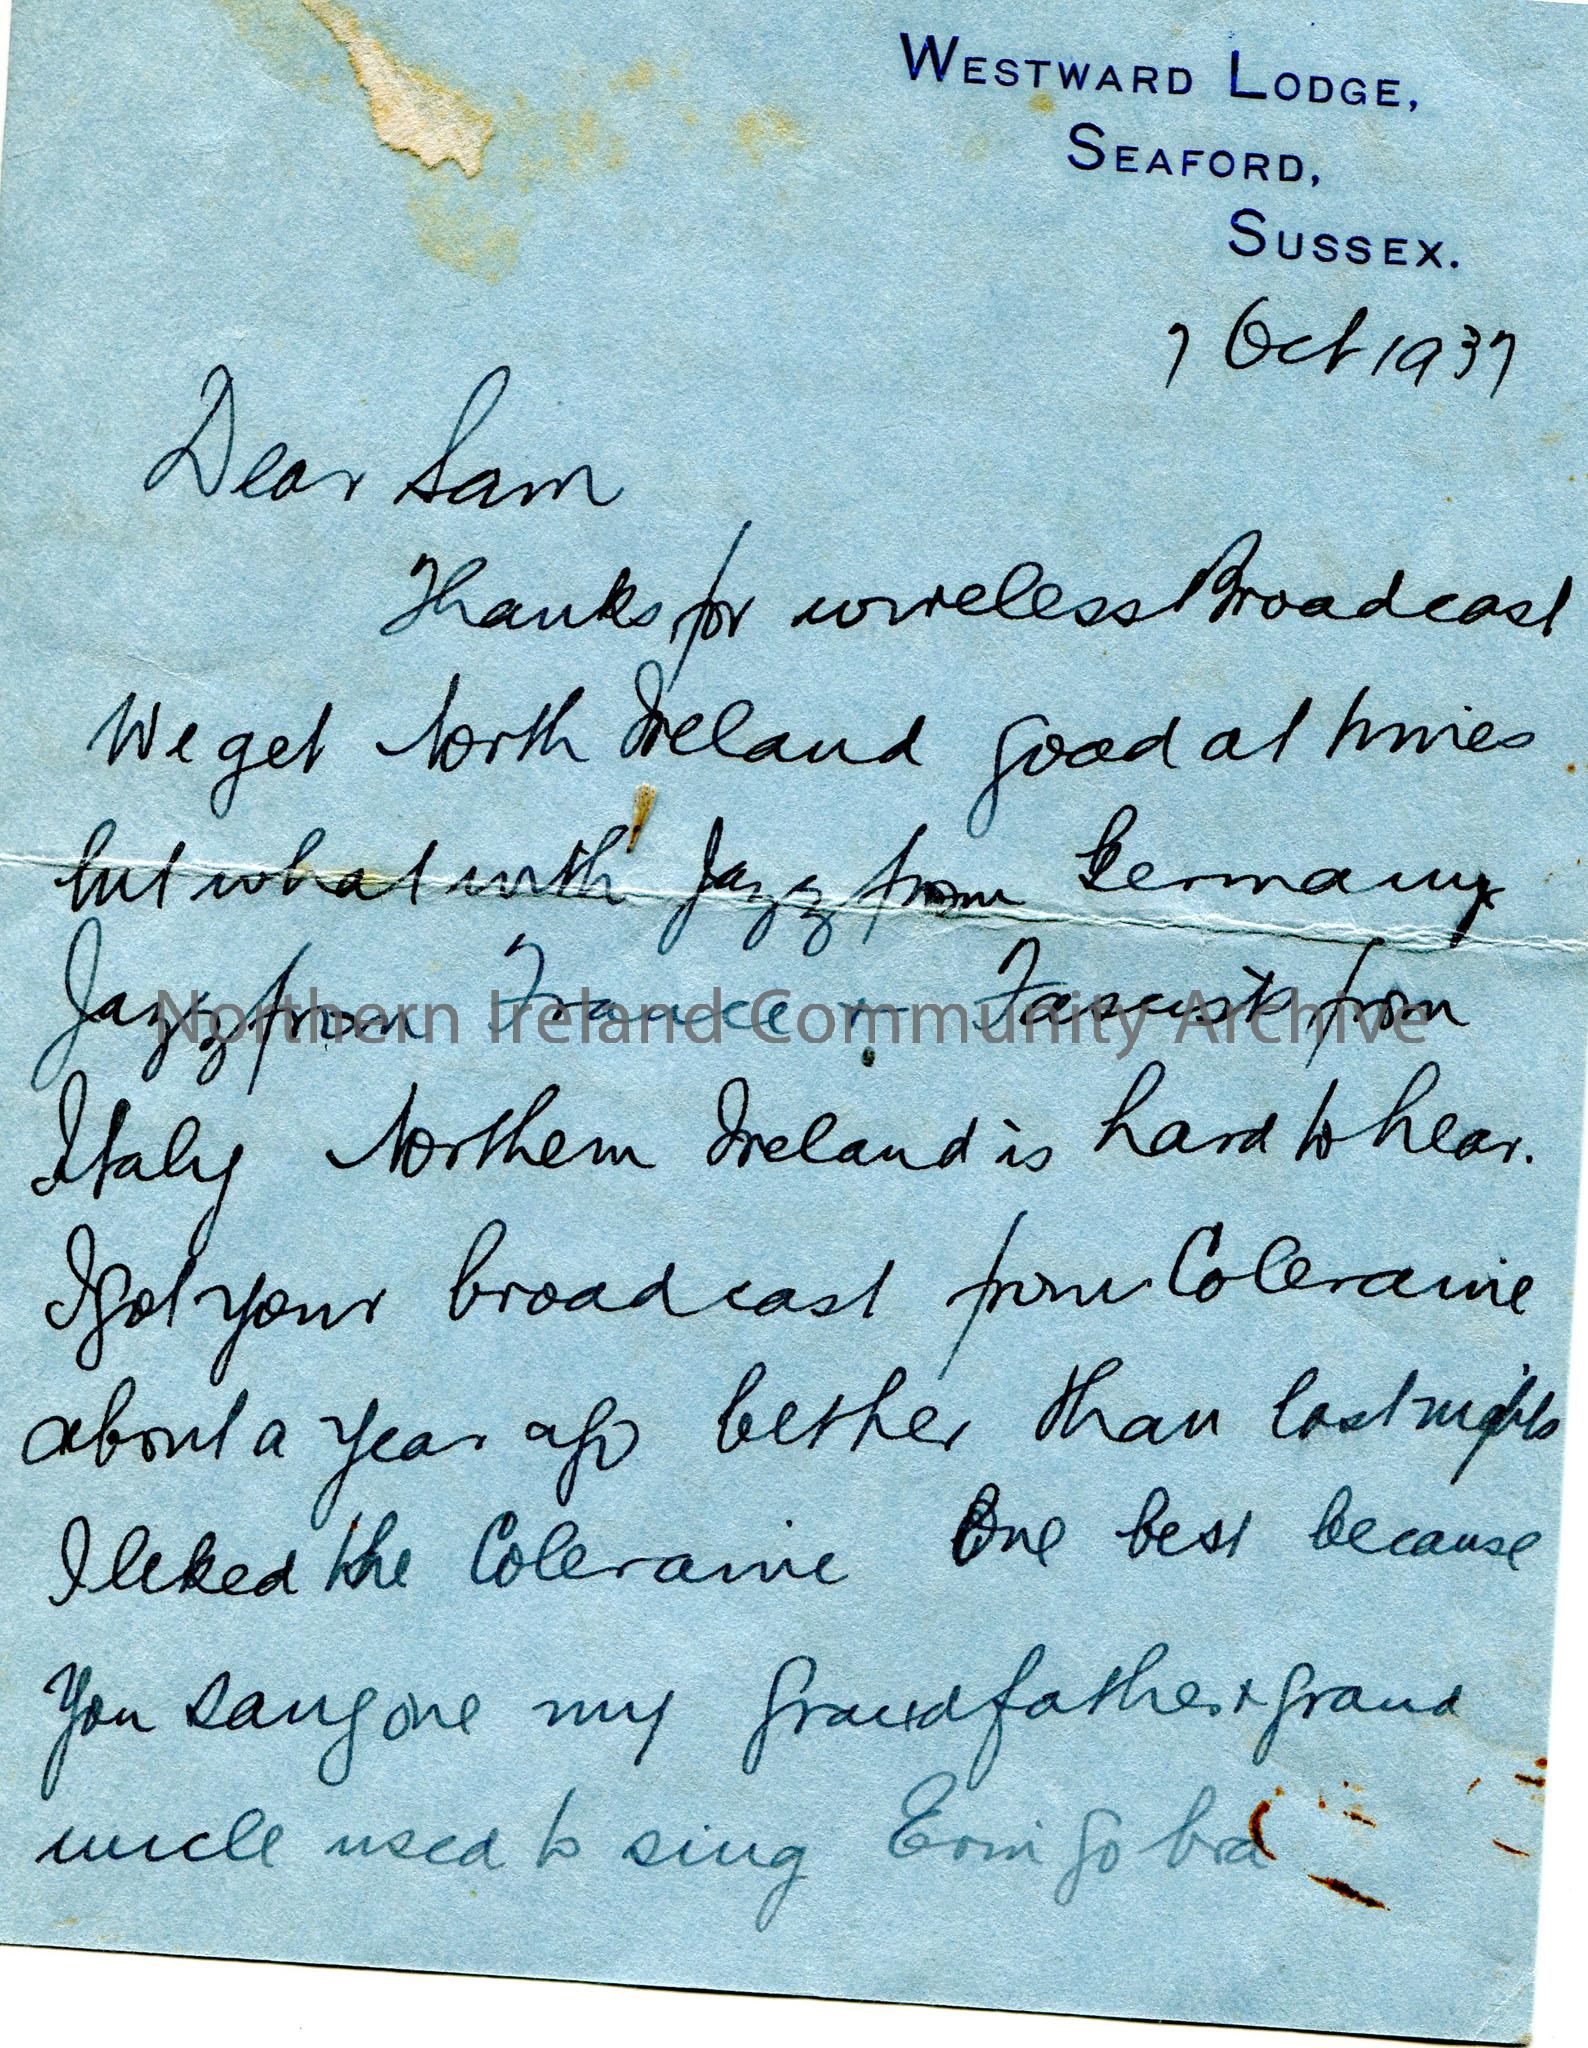 WESTWARD LODGE,
SEAFORD,
SUSSEX.
7 Oct 1937
Dear Sam
Thanks for wireless Broadcast
We get North Ireland good at times
but what with Jazz from Germany
Jazz from France + Fascists from
Northern Ireland Community Archive
Italy Northern Ireland is hard to hear.
I got your broadcast from Coleraine
about a year ago bether than last nights
I liked the Coleraine One best because
You sang one my Grandfather + grand
uncle used to sing Erin go bra